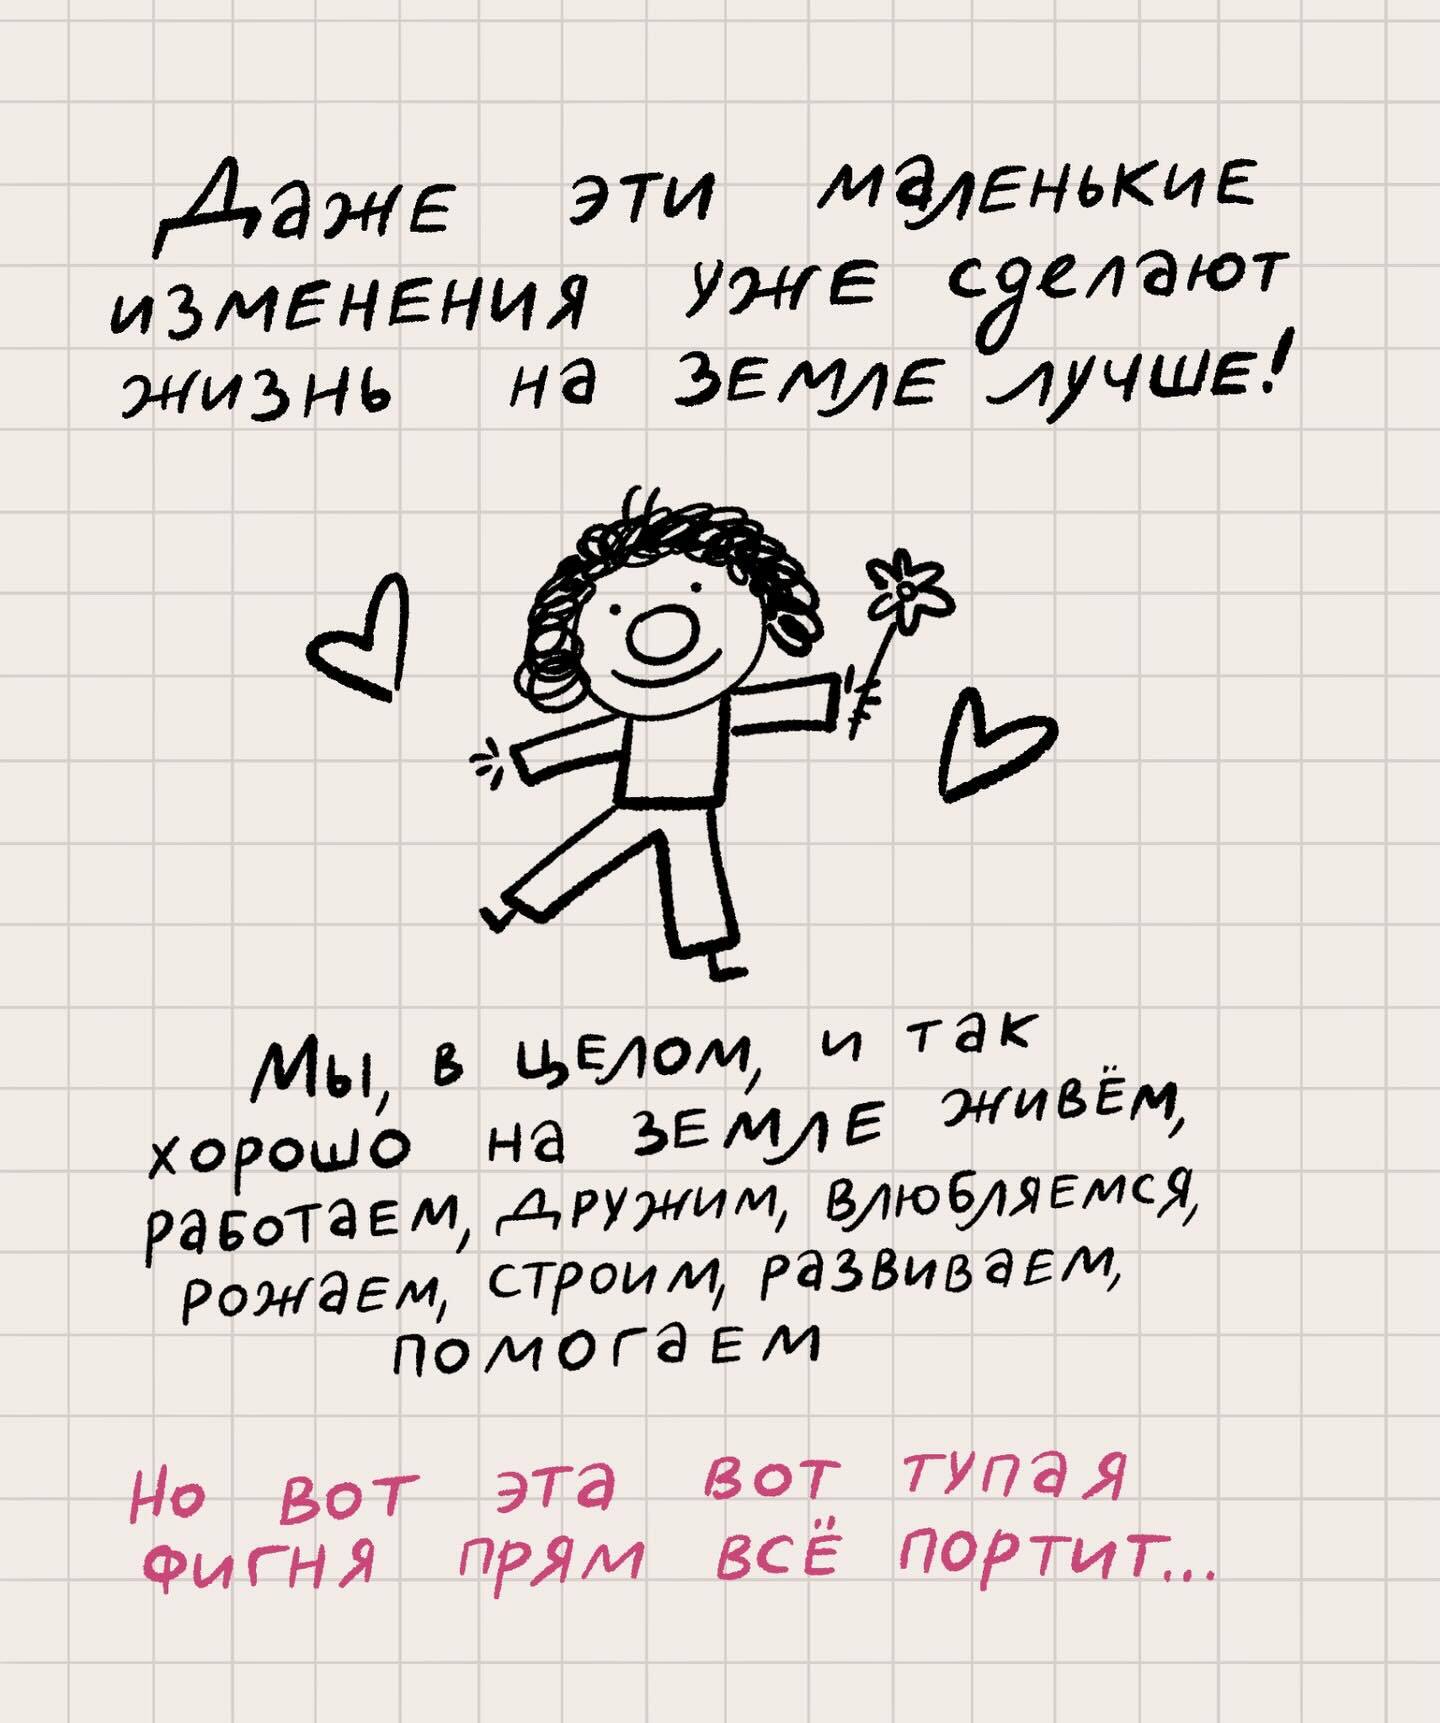 Даже эти маленькие
изменения уже сделают
жизнь на земле лучше!
Мы, в целом, и так
хорошо на земле живём,
работаем, дружим, влюбляемся,
рожаем, строим, развиваем,
помогаем
Но вот эта вот тупая
фигня прям всё портит...